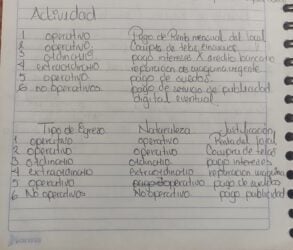 Actividad
1 operativo Pago de Renta mensual del local
2 operativo Compra de telas e insumos
3 ordinario pago intereses x credito bancario
4 extraordinario reparacion de maquina urgente
5 operativo pago de sueldos
6 no operativos pago de servicio de publicidad
digital eventual.
Tipo de Egreso Naturaleza Justificación
1 operativo operativo Renta del local
2 operativo operativo Compra de telas
3 ordinario ordinario pago intereses
4 extraordinario extraordinario reparacion maquina
5 operativo operativo pago de sueldos
6 No operativos No operativo pago publicidad
Norma